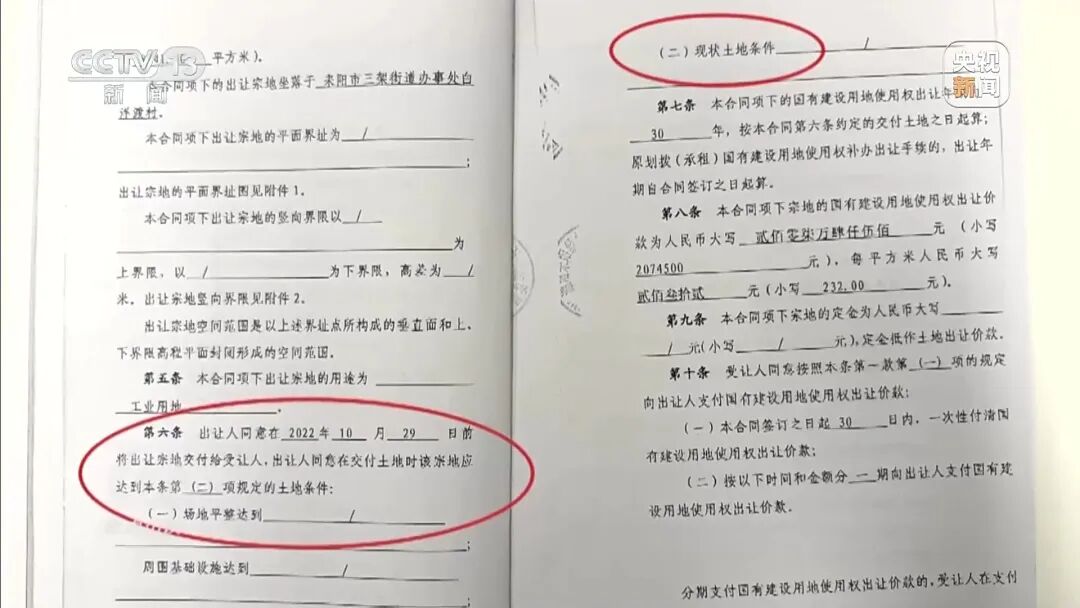 CCTV 13
新闻
央视
新闻
平方米).
合同项下的出让宗地坐落于 耒阳市三架街道办事处白
洋渡村.
本合同项下出让宗地的平面界址为 /
;
出让宗地的平面界址图见附件1.
本合同项下出让宗地的竖向界限以 /
为
上界限,以 / 为下界限,高差为 /
米.出让宗地竖向界限见附件2.
出让宗地空间范围是以上述界址点所构成的垂直面和上、
下界限高程平面封闭形成的空间范围.
第五条 本合同项下出让宗地的用途为
工业用地 .
第六条 出让人同意在 2022 年 10 月 29 日前
将出让宗地交付给受让人,出让人同意在交付土地时该宗地应
达到本条第 (二) 项规定的土地条件:
(一)场地平整达到 /
;
周围基础设施达到 /
;
(二)现状土地条件 /
第七条 本合同项下的国有建设用地使用权出让年
30 年,按本合同第六条约定的交付土地之日起算;
原划拨(承租)国有建设用地使用权补办出让手续的,出让年
期自合同签订之日起算.
第八条 本合同项下宗地的国有建设用地使用权出让价
款为人民币大写 贰佰零柒万肆仟伍佰 元(小写
2074500 元),每平方米人民币大写
贰佰叁拾贰 元(小写 232.00 元).
第九条 本合同项下宗地的定金为人民币大写
/ 元(小写 / 元),定金抵作土地出让价款.
第十条 受让人同意按照本条第一款第 (一) 项的规定
向出让人支付国有建设用地使用权出让价款:
(一)本合同签订之日起 30 日内,一次性付清国
有建设用地使用权出让价款;
(二)按以下时间和金额分 一 期向出让人支付国有建
设用地使用权出让价款.
分期支付国有建设用地使用权出让价款的,受让人在支付